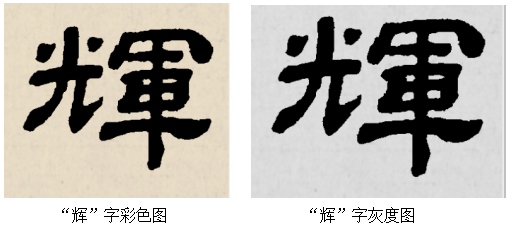 輝 輝
“辉”字彩色图 “辉”字灰度图